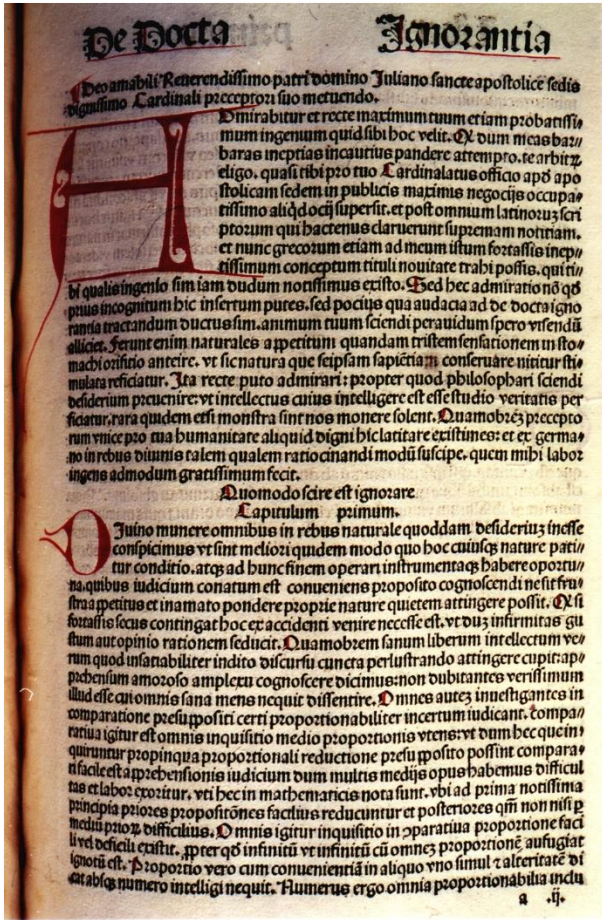 De Docta Ignorantia
Deo amabili Reuerendissimo patri domino Juliano sancte apostolice sedis
dignissimo Cardinali preceptori suo metuendo.
ADmirabitur et recte maximum tuum et iam probatissi⸗
mum ingenium quid sibi hoc velit. Qꝫ dum meas bar⸗
baras ineptias incautius pandere attempto. te arbitrꝫ
eligo. quasi tibi pro tuo Cardinalatus officio apd̓ apo
stolicam sedem in publicis maximis negocijs occupa⸗
tissimo aliqd̓ ocij supersit. et post omnium latinoruꝫ scri
ptorum qui hactenus claruerunt supremam notitiam.
et nunc grecorum etiam ad meum istum fortassis inep⸗
tissimum conceptum tituli nouitate trahi possis. qui ti⸗
bi qualis ingenio sim iam dudum notissimus existo. Sed hec admiratio nō qd̓
prius incognitum hic insertum putes. sed pocius qua audacia ad de docta igno
rantia tractandum ductus sim. animum tuum sciendi perauidum spero visendū
alliciet. Ferunt enim naturales appetitum quandam tristem sensationem in sto⸗
machi orifitio anteire. vt sic natura que seipsam sapiētiam conseruare nititur sti⸗
mulata reficiatur. Ita recte puto admirari: propter quod philosophari sciendi
desiderium preuenire: vt intellectus cuius intelligere est esse studio veritatis per
ficiatur. rara quidem etsi monstra sint nos monere solent. Quamobrē preceptorꝫ
rum vnice pro tua humanitate aliquid digni hic latitare existimes: et ex germa⸗
no in rebus diuinis talem qualem ratiocinandi modū suscipe. quem mihi labor
ingens admodum gratissimum fecit.
Quomodo scire est ignorare
Capitulum primum.
DJuino munere omnibus in rebus naturale quoddam desideriuꝫ inesse
conspicimus vt sint meliori quidem modo quo hoc cuiusqꝫ nature pati⸗
tur conditio. atqꝫ ad hunc finem operari instrumentaqꝫ habere oportu⸗
na. quibus iudicium conatum est conueniens proposito cognoscendi ne sit fru⸗
stra appetitus et in amato pondere proprie nature quietem attingere possit. Qꝫ si
fortassis secus contingat hoc ex accidenti venire necesse est. vt duꝫ infirmitas gu
stum aut opinio rationem seducit. Quamobrem sanum liberum intellectum ve⸗
rum quod insatiabiliter indito discursu cuncta perlustrando attingere cupit: ap⸗
prehensum amoroso amplexu cognoscere dicimus: non dubitantes verissimum
illud esse cui omnis sana mens nequit dissentire. Omnes auteꝫ inuestigantes in
comparatione presuppositi certi proportionabiliter incertum iudicant. compa⸗
ratiua igitur est omnis inquisitio medio proportionis vtens: vt dum hec que in⸗
quiruntur propinqua proportionali reductione presupposito possint compara⸗
ri facile est apprehensionis iudicium dum multis medijs opus habemus difficul
tas et labor exoritur. vti hec in mathematicis nota sunt. vbi ad prima notissima
principia priores propositōnes facilius reducuntur et posteriores qm̄ non nisi ꝑ
mediū priorꝫ difficilius. Omnis igitur inquisitio in ꝯparatiua proportione faci
li vel deficili existit. ꝓpter qd̓ infinitū vt infinitū cū omneꝫ proportionē aufugiat
ignotū est. Proportio vero cum conuenientiā in aliquo vno simul ⁊ alteritatē di
cat absqꝫ numero intelligi nequit. Numerus ergo omnia proportionabilia inclu
a .ij.